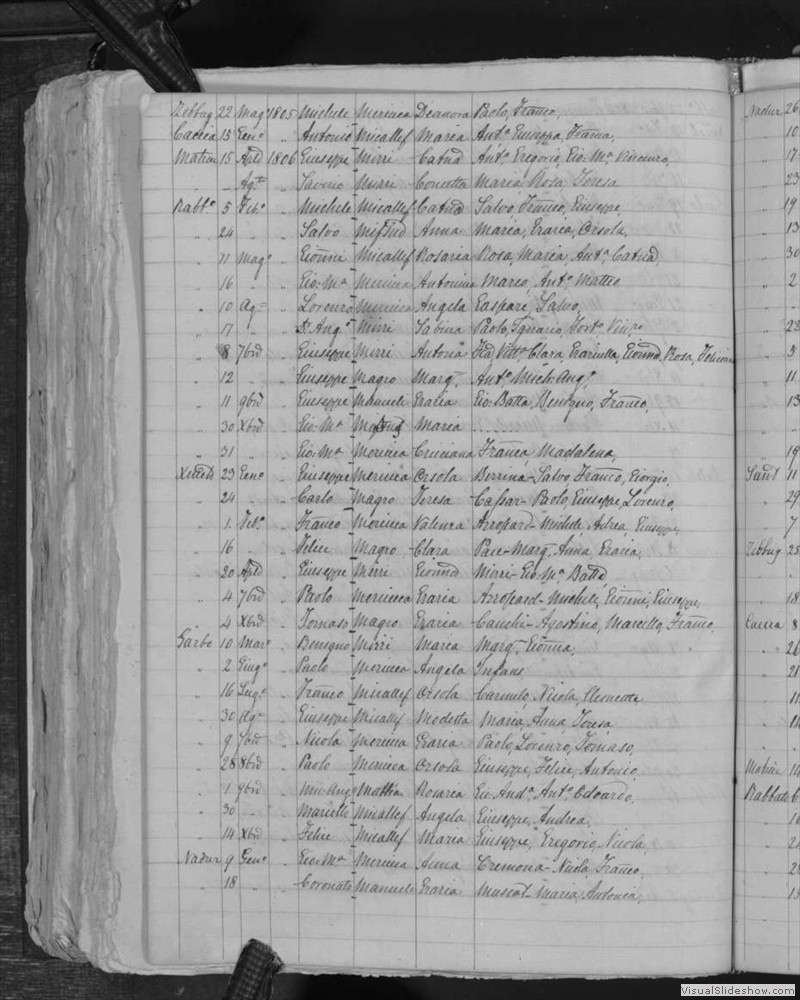 Zebbug 22 Mag° 1805 Michele Mercieca Deanora Paolo, Franco,
Caccia 13 Gen° " Antonio Micallef Maria Ant° Giuseppe, Franca,
Matrice 15 Apd 1806 Giuseppe Mizzi Catnd Ant° Gregorio, Gio: Mª Vincenzo,
" " Ag° " Saverio Mizzi Concetta Maria Rosa, Teresa
Rabb° 5 Feb° " Michele Micallef Catnd Salvo, Franco, Giuseppe,
" 24 " " Salvo Mifsud Anna Maria, Grazia, Orsola,
" 11 Mag° " Gionni Micallef Rosaria Rosa, Maria, Ant° Catnd,
" 16 " " Gio: Mª Mercieca Antonina Marco, Ant° Matteo
" 10 Ag° " Lorenzo Mercieca Angela Gaspare, Salvo,
" 17 " " Ang° Mizzi Sabina Paolo Ignazio, Fort° Vinc°
" 8 7brd " Giuseppe Mizzi Antonia Vitt° Clara, Graziulla, Gionnd, Rosa,
" 12 " " Giuseppe Magro Marg. Ant° Mich: Ang°
" 11 9brd " Giuseppe Manueli Grazia Gio: Batta, Benigno, Franco,
" 30 Xbrd " Gio: Mª Mifsud Maria . . . . .
" 31 " " Gio: Mª Mercieca Cruciana Franca Madalena,
23 Gen° " Giuseppe Mercieca Orsola Berrina - Salvo, Franco, Giorgio,
" 24 " " Carlo Magro Teresa Cassar - Paolo, Giuseppe, Lorenzo,
" 1 Feb° " Franco Mercieca Valenza Azzopard - Michele, Adrea, Giuseppe,
" 16 " " Felice Magro Clara Pace - Marg. Anna, Grazia,
" 20 Apd " Giuseppe Mizzi Gionnd Mizzi - Gio: Mª Battd
" 4 7brd " Paolo Mercieca Grazia Azzopard - Michele, Gionni, Giuseppe,
" 4 Xbrd " Tomaso Magro Grazia Cauchi - Agostino, Marcello, Franco,
Garbo 10 Mar° " Benigno Mizzi Maria Marg. Gionna,
" 2 Giug° " Paolo Mercieca Angela Infans
" 16 Lug° " Franco Micallef Orsola Carmelo, Nicola, Clemente
" 30 Ag° " Giuseppe Micallef Modesta Maria, Anna, Teresa
" 9 7brd " Nicola Mercieca Grazia Paolo, Lorenzo, Tomaso,
" 28 8brd " Paolo Mercieca Orsola Giuseppe, Felice, Antonio,
" 1 9brd " Mic: Ang° Mattia Rosaria Gio: And° Ant° Odoardo,
" 30 " " Marcello Micallef Angela Giuseppe, Andrea,
" 14 Xbrd " Felice Micallef Maria Giuseppe, Gregorio, Nicola,
Nadur 9 Gen° " Gio: Mª Mercieca Anna Cremona - Nicola, Franco,
" 18 " " Coronato Manueli Grazia Muscat - Maria, Antonia,
Nadur 26
" 10
" 17
" 23
" 19
" 13
" 30
" 2
" 22
" 3
" 11
" 13
" 19
11
" 29
" 7
Zebbug 25
" 18
Caccia 8
" 26
" 21
" 11
" 11
Matrice 14
Rabbato 6
VisualSlideshow.com